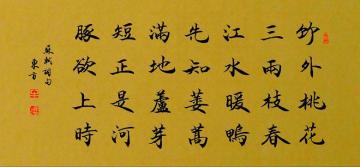 竹外桃花
三兩枝春
江水暖鴨
先知蔞蒿
滿地蘆芽
短正是河
豚欲上時
蘇軾詩句
東方